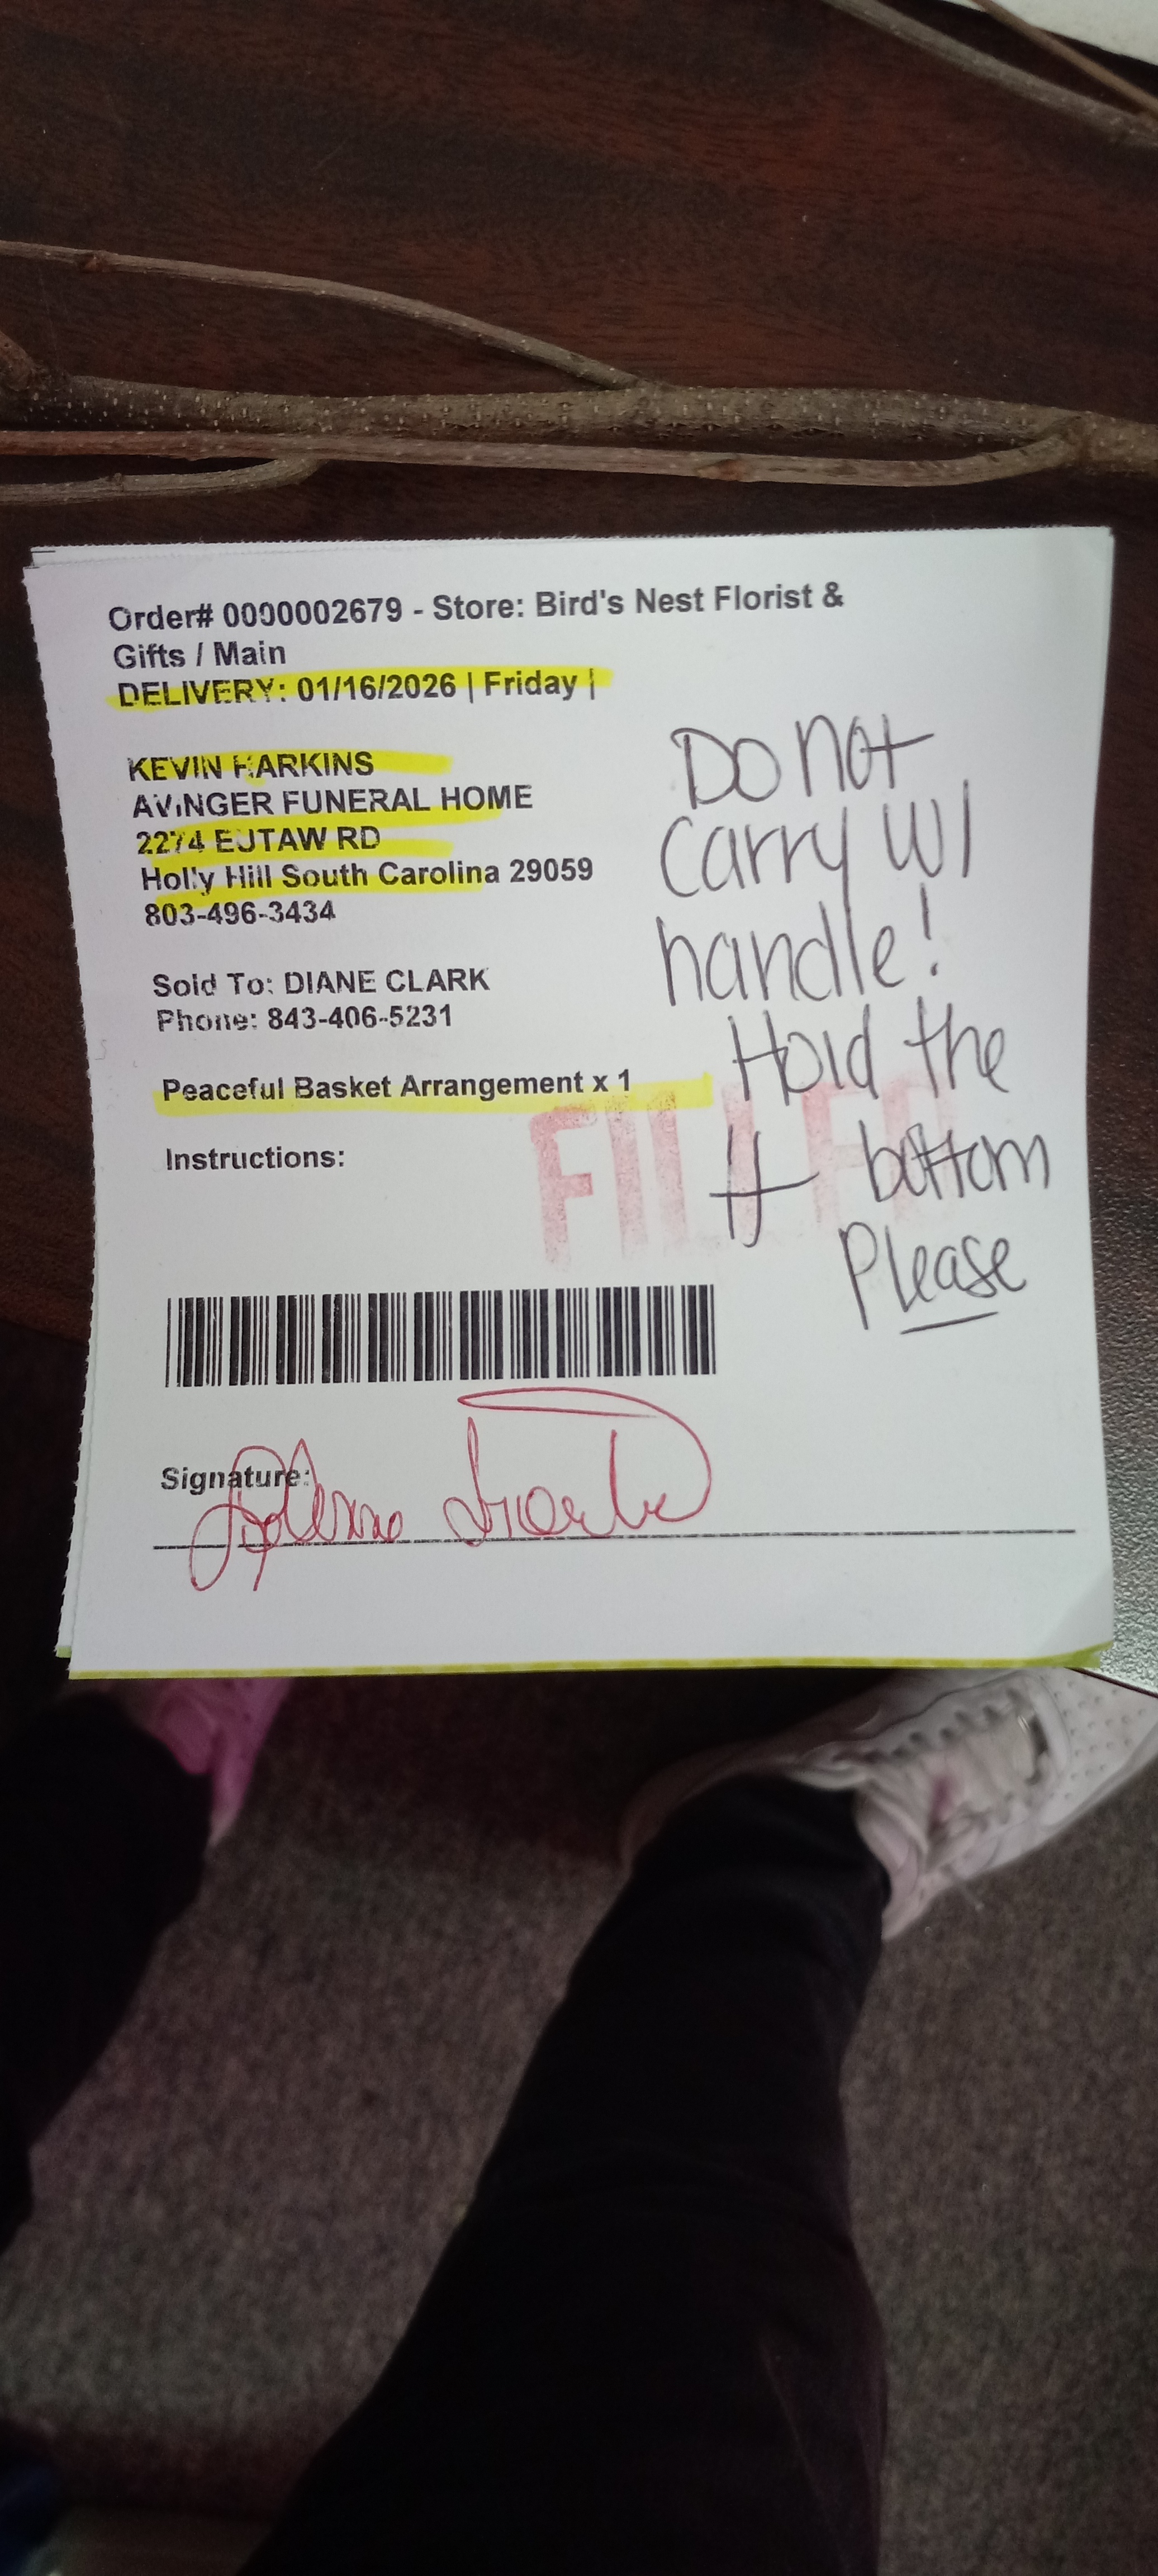 Order# 0000002679 - Store: Bird's Nest Florist &
Gifts / Main
DELIVERY: 01/16/2026 | Friday |
KEVIN HARKINS
AVINGER FUNERAL HOME
2274 EUTAW RD
Holly Hill South Carolina 29059
803-496-3434
Sold To: DIANE CLARK
Phone: 843-406-5231
Peaceful Basket Arrangement x 1
Instructions:
FILLED
Signature:
Do not
carry w/
handle!
Hold the
bottom
Please